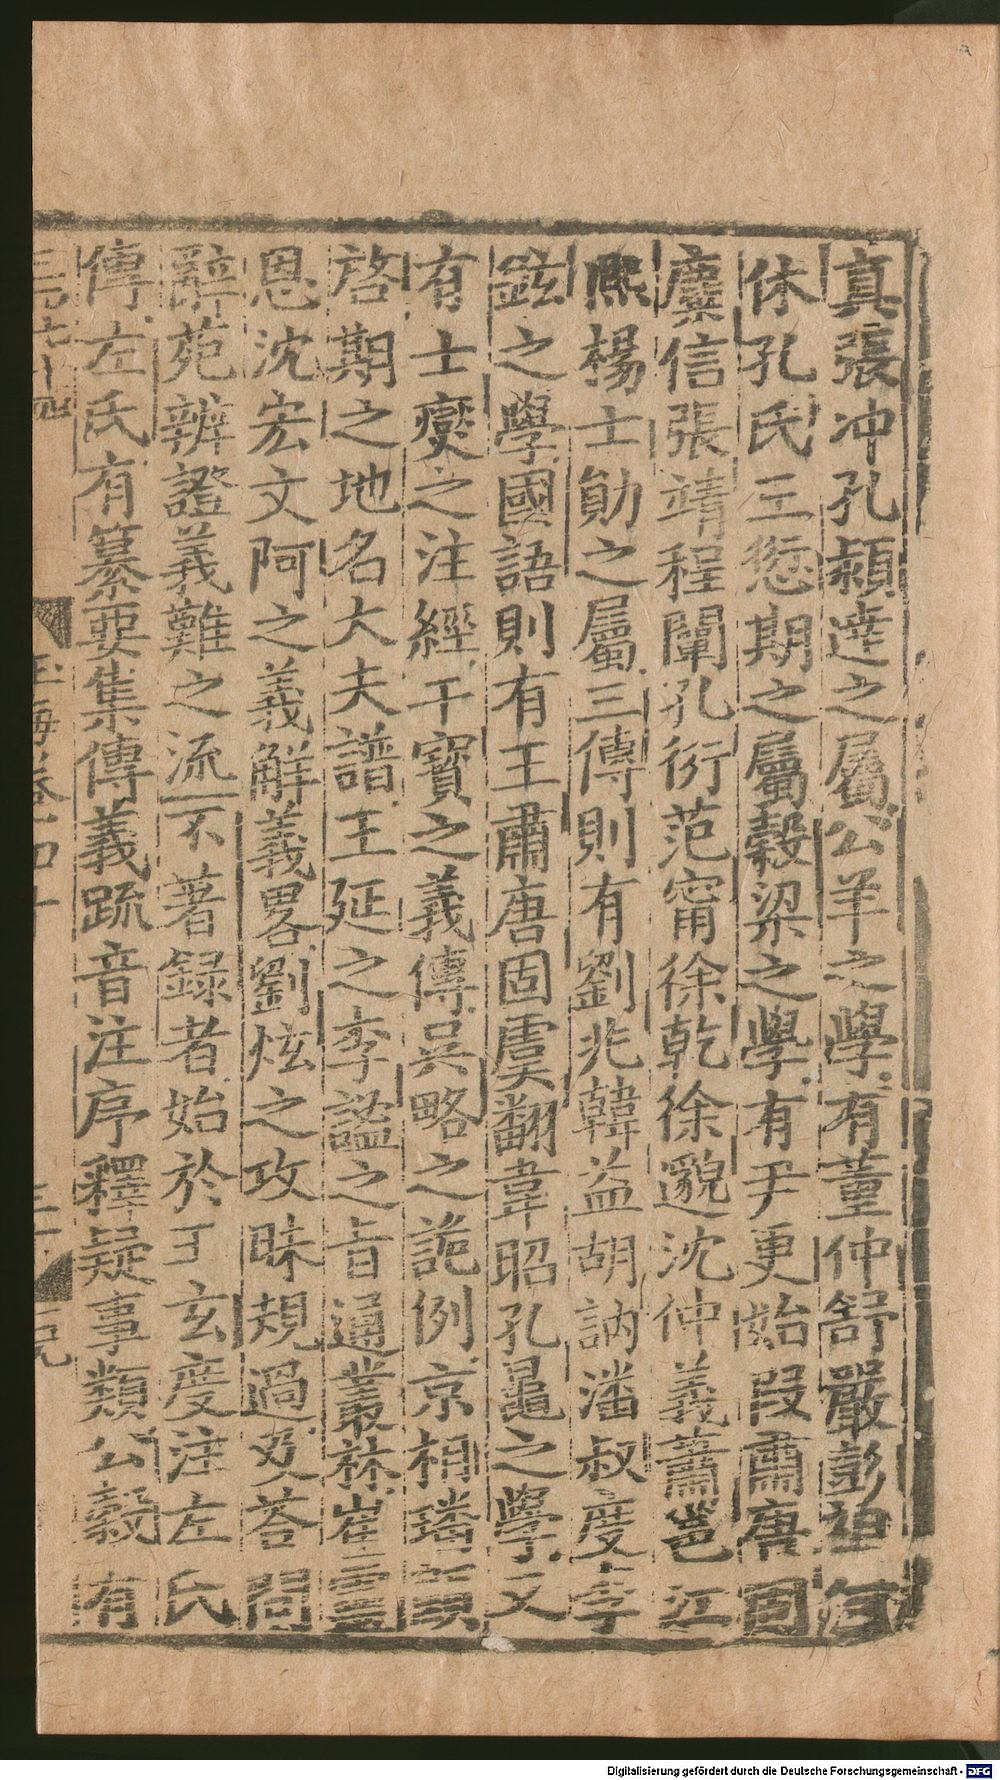 真張冲孔穎達之屬公羊之學有董仲舒嚴彭祖何
休孔氏王愆期之屬穀梁之學有尹更始段肅唐固
麋信張靖程闡孔衍范甯徐乾徐邈沈仲義蕭邕江
熙楊士勛之屬三傳則有劉兆韓益胡訥潘叔度李
鉉之學國語則有王肅唐固虞翻韋昭孔鼂之學又
有士燮之注經干寶之義傳吳略之詭例京相璠
啓期之地名大夫譜王延之李謐之旨通叢林崔靈
恩沈宏文阿之義解義畧劉炫之攻昧規過及荅問
辭苑辨證義難之流不著録者始於王玄度注左氏
傳左氏有纂要集傳義疏音注序釋疑事類公穀有
玉海卷四十